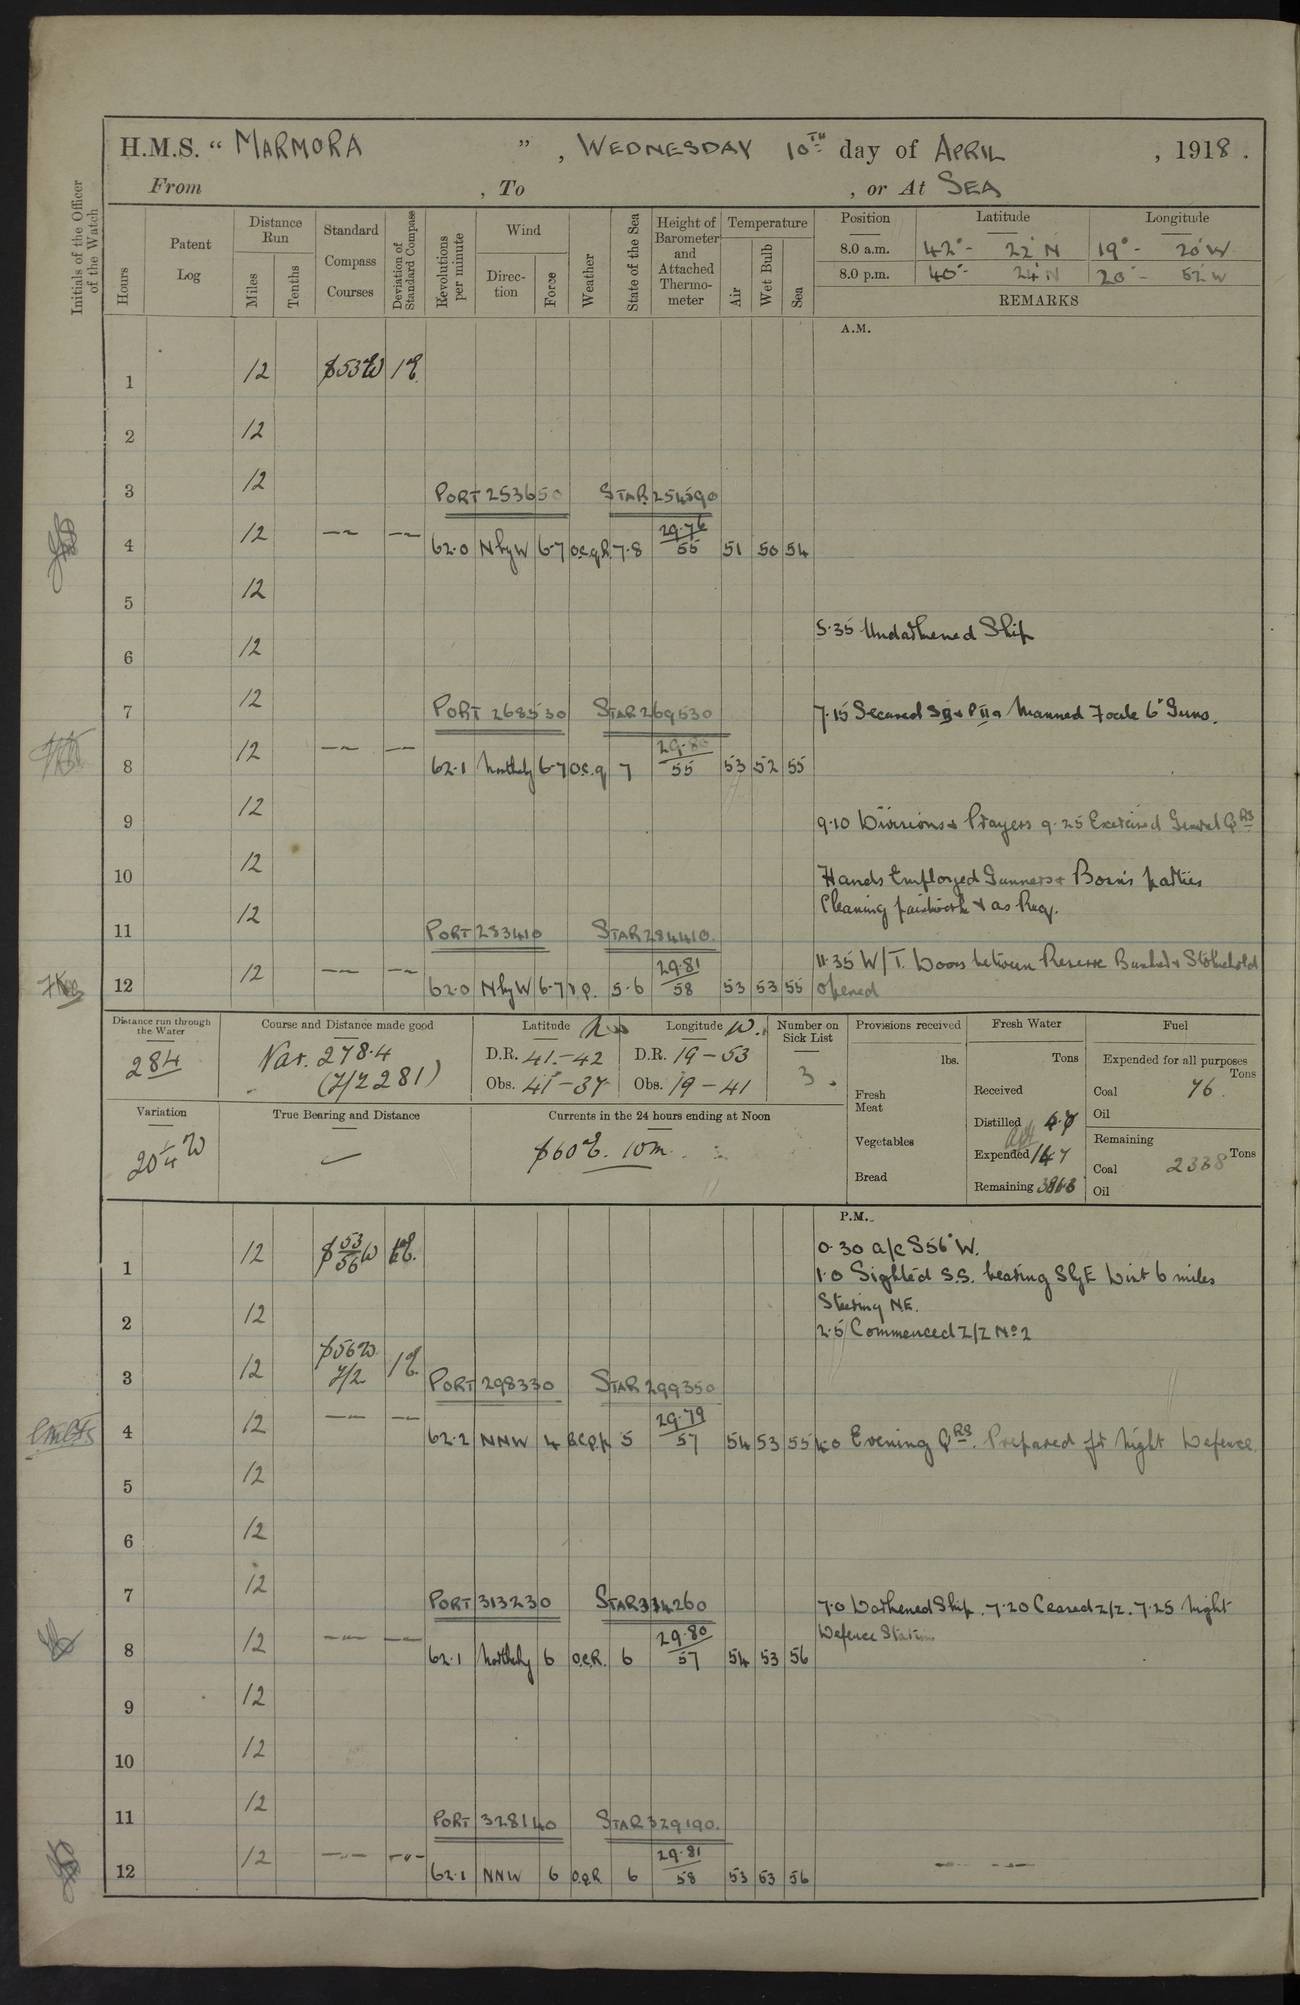 H.M.S. “ MARMORA ” , WEDNESDAY 10TH day of APRIL , 1918 .
From , To , or At SEA
Initials of the Officer of the Watch
Hours
Patent Log
Distance Run
Miles
Tenths
Standard Compass Courses
Deviation of Standard Compass
Revolutions per minute
Wind
Direction
Force
Weather
State of the Sea
Height of Barometer and Attached Thermometer
Temperature
Air
Wet Bulb
Sea
Position Latitude Longitude
8.0 a.m. 42° - 22' N 19° - 20' W
8.0 p.m. 40° - 24' N 20° - 52' W
REMARKS
A.M.
1 12 S53W 1E
2 12
3 12 PORT 253650 STAR 254590
4 12 —~ —~ 62.0 NbyW 6-7 7-8 29.76/55 51 50 54
5 12
5.35 Undarkened Ship
6 12
7 12 PORT 268530 STAR 269530 7.15 Secured SII & PII & Manned Focle 6" Guns.
8 12 —~ —~ 62.1 Northerly 6-7 o.c.q 7 29.80/55 53 52 55
9 12 9.10 Divisions & Prayers 9.25 Exercised General QRS
10 12 Hands Employed Gunners & Bosn's parties
Cleaning paintwork & as Req.
11 12 PORT 283410 STAR 284410.
11.35 W/T. Doors between Reserve Bunker & Stokehold
12 12 —~ —~ 62.0 NbyW 6-7 5-6 29.81/58 53 53 55 opened
Distance run through the Water
284
Course and Distance made good
278.4
(Z/Z 281)
Latitude N
D.R. 41-42
Obs. 41-37
Longitude W.
D.R. 19-53
Obs. 19-41
Number on Sick List
3.
Provisions received
lbs.
Fresh Meat
Vegetables
Bread
Fresh Water
Tons
Received
Distilled
Expended 147
Remaining
Fuel
Expended for all purposes
Tons
Coal 76.
Oil
Remaining
Tons
Coal 2338
Oil
Variation
20 1/4 W
True Bearing and Distance
Currents in the 24 hours ending at Noon
S60E. 10m.
P.M.
0.30 a/c S56°W.
1 12 S 53/56 W 1E. 1.0 Sighted S.S. bearing SbyE Dist 6 miles
Steering NE.
2 12 2.5 Commenced Z/Z No 2
3 12 S56W Z/Z 1E PORT 298330 STAR 299350
4 12 —~ —~ 62.2 NNW 4 5 29.79/57 54 53 55 4.0 Evening QRS. Prepared for Night Defence.
5 12
6 12
7 12 PORT 313230 STAR 314260 7.0 Darkened Ship. 7.20 Ceased Z/Z. 7.25 Night
Defence Stations
8 12 —~ —~ 62.1 Northerly 6 o.c.R. 6 29.80/57 54 53 56
9 12
10 12
11 12 PORT 328140 STAR 329190.
12 12 —~ —~ 62.1 NNW 6 o.q.R 6 29.81/58 53 53 56